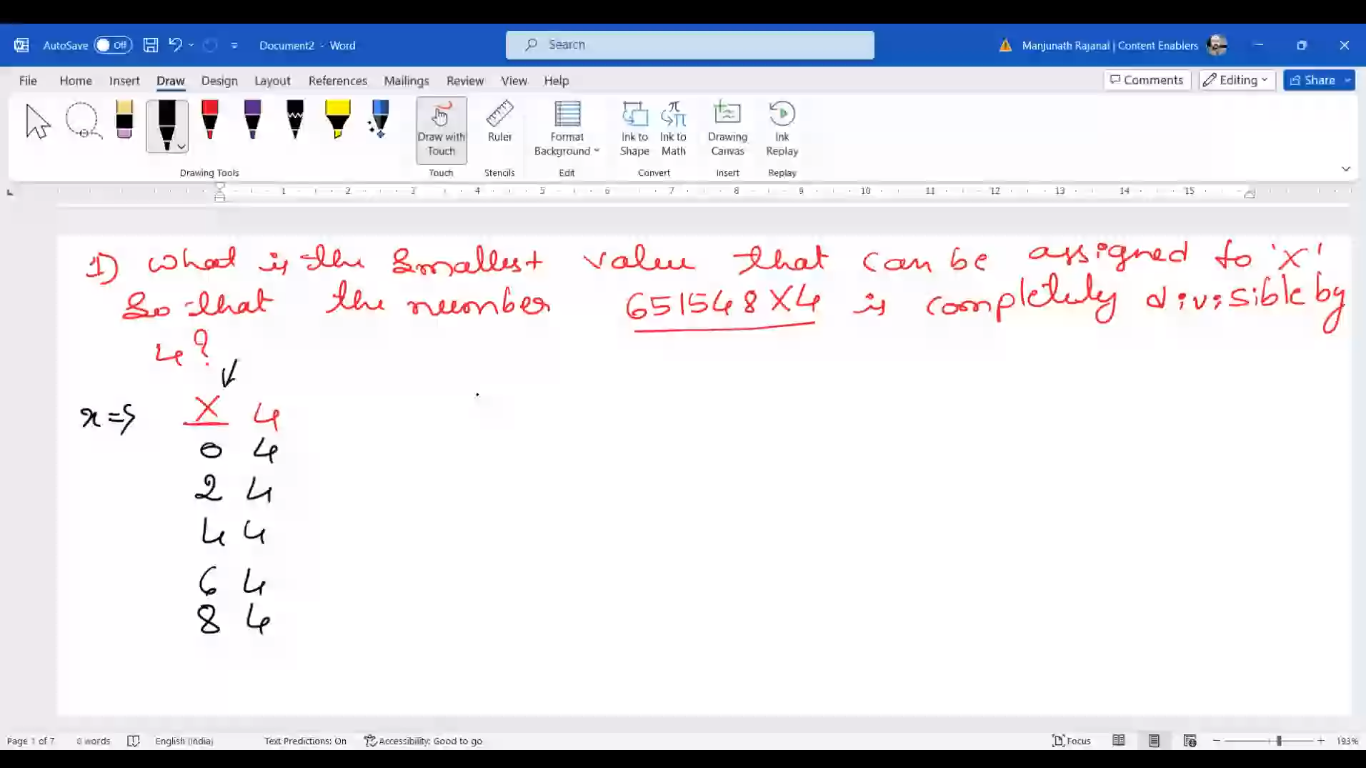 AutoSave Off Document2 - Word Search Manjunath Rajanal | Content Enablers
File Home Insert Draw Design Layout References Mailings Review View Help Comments Editing Share
Draw with Touch Ruler Format Background Ink to Shape Ink to Math Drawing Canvas Ink Replay
Drawing Tools Touch Stencils Edit Convert Insert Replay
1 2 3 4 5 6 7 8 9 10 11 12 13 14 15
1) What is the smallest value that can be assigned to 'X'
so that the number 651548X4 is completely divisible by
4?
x => X 4
0 4
2 4
4 4
6 4
8 4
Page 1 of 7 0 words English (India) Text Predictions: On Accessibility: Good to go Focus 193%